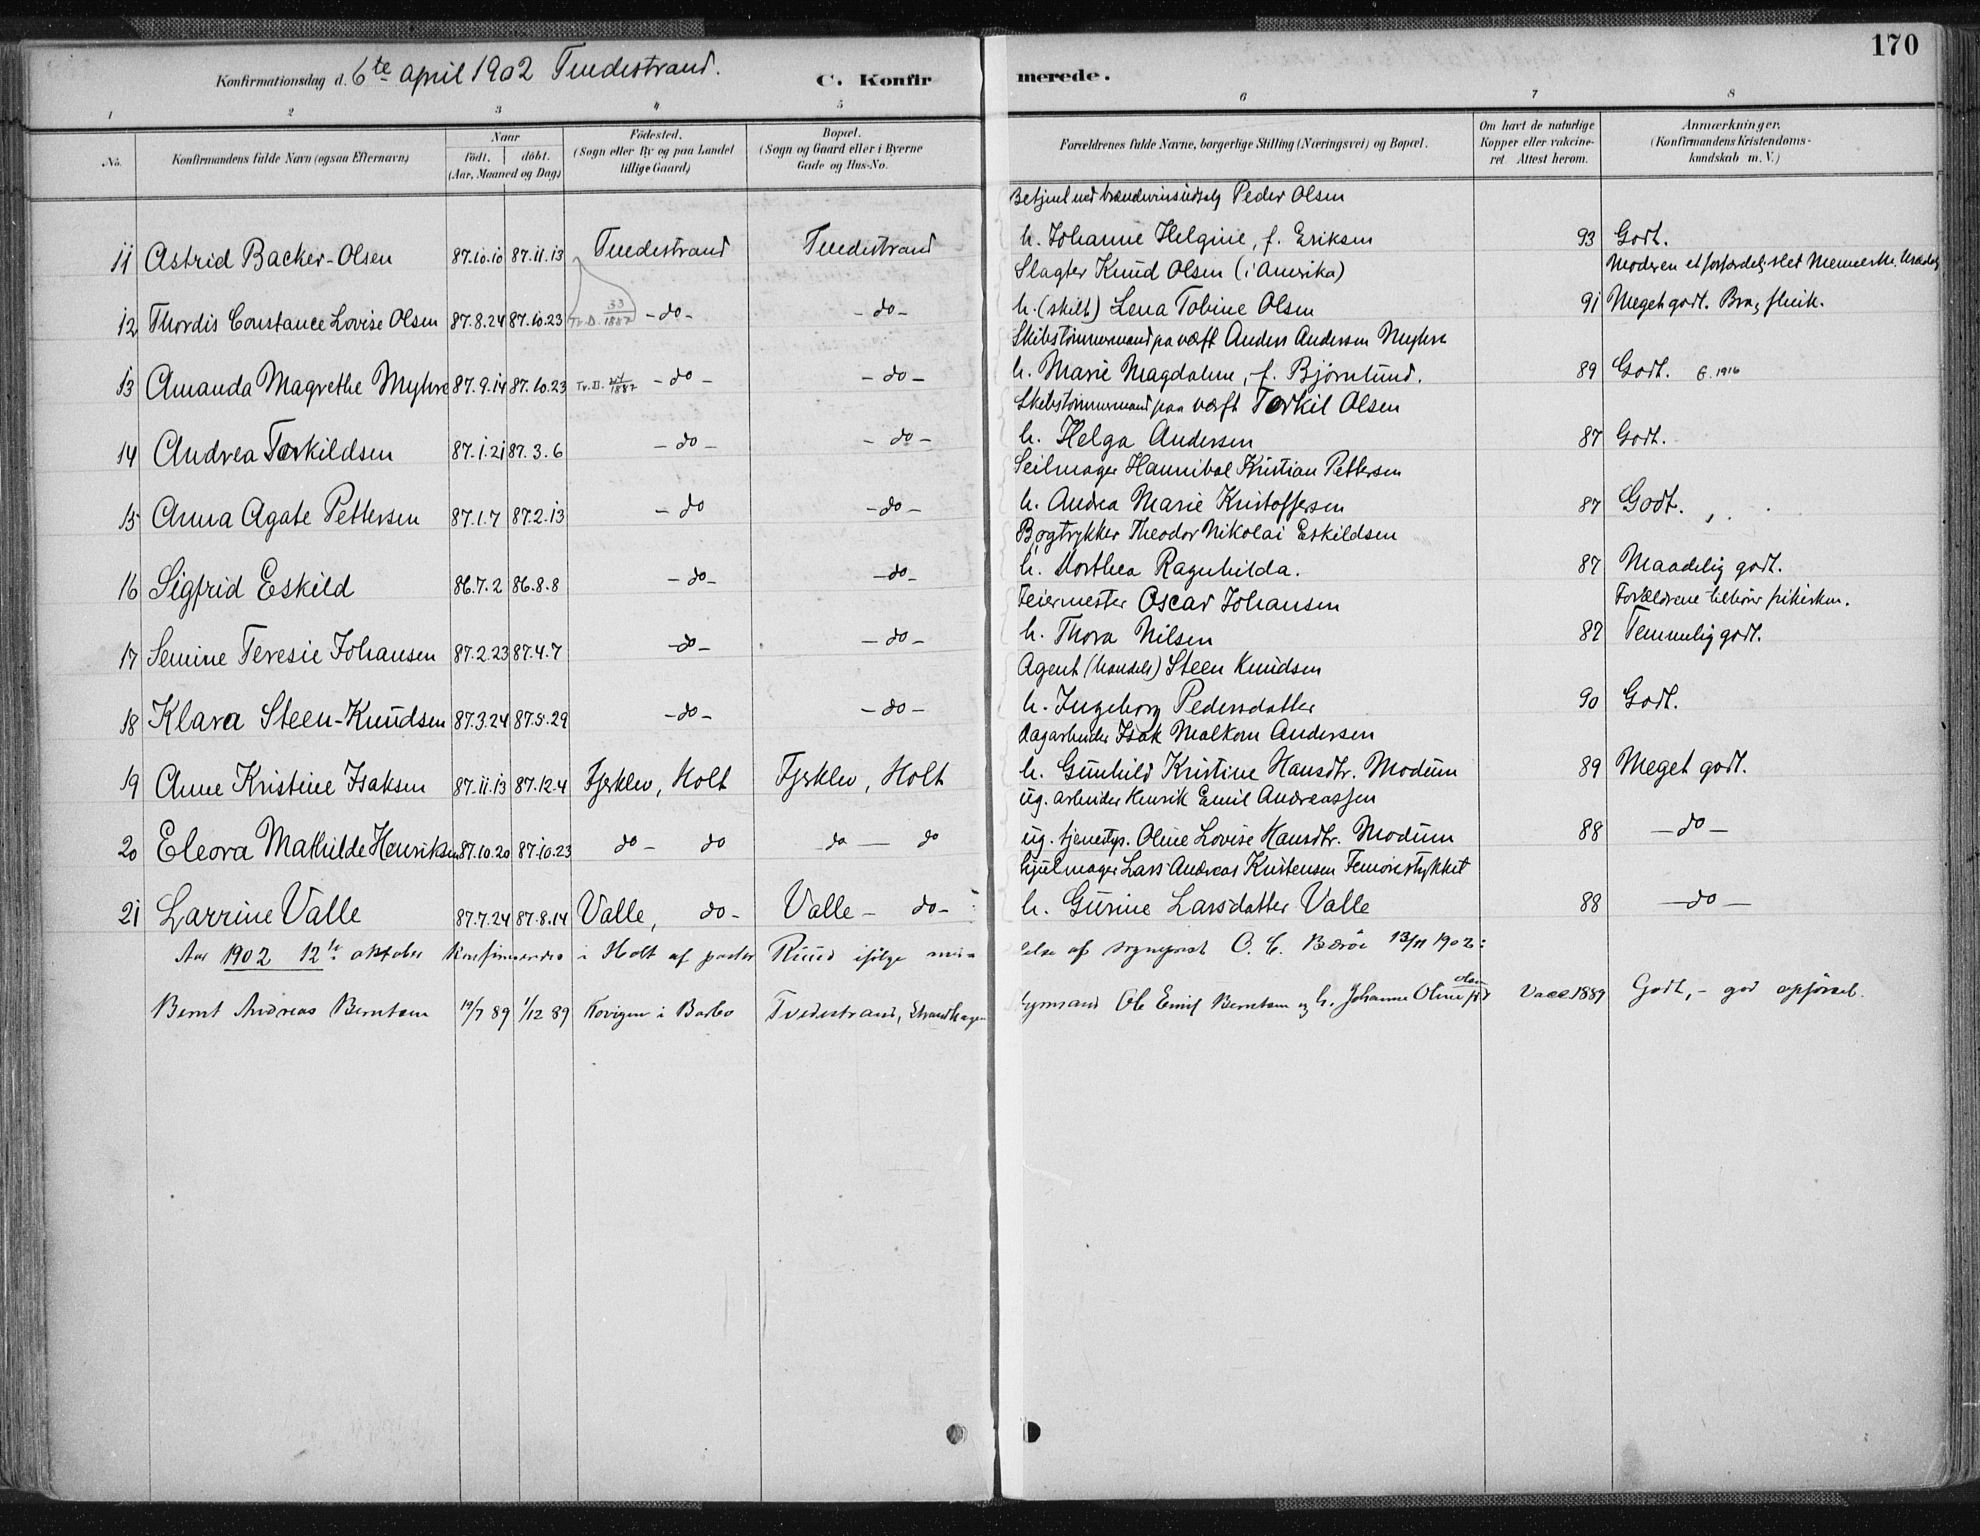 170
Konfirmationsdag d. 6te april 1902 Tvedestrand.
C. Konfirmerede.
1 2 3 4 5 6 7 8
No. Konfirmandens fulde Navn (ogsaa Efternavn) Naar født. døbt. (Aar, Maaned og Dag) Fødested. (Sogn eller By og paa Landet tillige Gaard) Bopæl. (Sogn og Gaard eller i Byerne Gade og Hus-No. Forældrenes fulde Navne, borgerlige Stilling (Næringsvei) og Bopæl. Om havt de naturlige Kopper eller vakcineret. Attest herom. Anmærkninger. (Konfirmandens Kristendomskundskab m. V.)
Betjent ved brændevinsudsalg Peder Olsen
11 Astrid Backer-Olsen 87.10.10 87.11.13 Tvedestrand Tvedestrand h. Johanne Helgine, f. Eriksen 93 Godt.
Slagter Knud Olsen (i Amerika) Moderen et forfærdelig slet Menneske.
12 Thordis Constance Lovise Olsen 87.8.24 87.10.23 Tv. D. 33/1887 -do- -do- h. (skilt) Lena Tobine Olsen 91 Meget godt. Bra, flink.
Skibstømmermand paa værft Anders Andersen Myhre
13 Amanda Magrethe Myhre 87.9.14 87.10.23 Tv. D. 24/1887 -do- -do- h. Marie Magdalene, f. Bjørnlund. 89 Godt. G. 1916
Skibstømmermand paa værft Torkil Olsen
14 Andrea Torkildsen 87.1.21 87.3.6 -do- -do- h. Helga Andersen 87 Godt.
Seilmager Hannibal Kristian Pettersen
15 Anna Agate Pettersen 87.1.7 87.2.13 -do -do- h. Andrea Marie Kristoffersen 87 Godt.
Bogtrykker Theodor Nikolai Eskildsen
16 Sigfrid Eskild 86.7.2 86.8.8 -do- -do- h. Dorthea Ragnhilda. 87 Maadelig godt.
Feiermester Oscar Johansen Forældrene tilhører frikirken.
17 Semine Teresie Johansen 87.2.23 87.4.7 -do- -do- h. Thora Nilsen 87 Temmelig godt.
Agent (handels) Steen Knudsen
18 Klara Steen-Knudsen 87.3.24 87.5.29 -do- -do- h. Ingeborg Pedersdatter 90 Godt.
Dagarbeider Isak Malkom Andersen
19 Anne Kristine Isaksen 87.11.13 87.12.4 Fjerklev, Holt Fjerklev, Holt h. Gunhild Kristine Hansdtr. Modum 89 Meget godt.
ug. arbeider Henrik Emil Andreassen
20 Eleora Mathilde Henriksen 87.10.20 87.10.23 do - do do - do ug. tjenestep. Oline Lovise Hansdtr. Modum 88 -do-
Hjulmager Lars Andreas Kristensen
21 Larrine Valle 87.7.24 87.8.14 Valle, do- Valle - do- h. Gurine Larsdatter Valle 88 -do-
Aar 1902 12te oktober konfirmeredes i Holt af pastor Ruud ifølge af sogneprest O. C. Bærøe 13/11 1902:
Bernt Andreas Berntsen 19/7 89 1/12 89 i Barbo Tvedestrand, Strandhagen Ole Emil Berntsen og h. Johanne Oline født Olsen Vacc. 1889 Godt, - god opførsel.